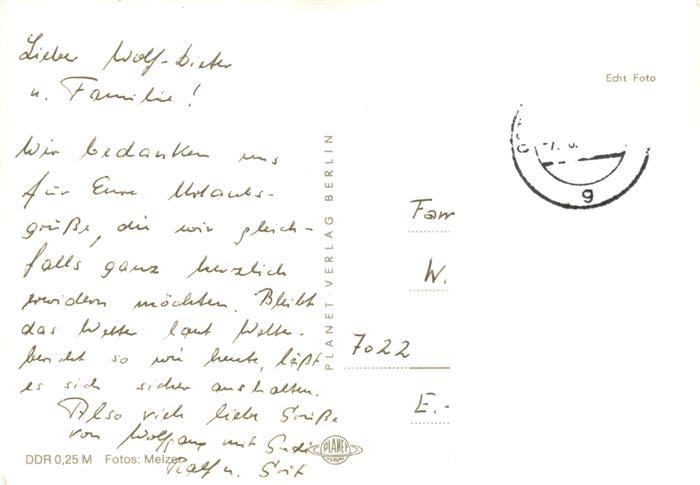 Lieber Wolf-Dieter
u. Familie!
Wir bedanken uns
für Eure Urlaubs-
grüße, die wir gleich-
falls ganz herzlich
erwidern möchten. Bleibt
das Wetter laut Wetter-
bericht so wie heute, läßt
es sich sicher aushalten.
Also viele liebe Grüße
von Wolfgang mit
Ralf u. Grit
DDR 0,25 M Fotos: Melzer
PLANET-VERLAG BERLIN
PLANET
Echt Foto
g
Fam
W.
7022
E.-